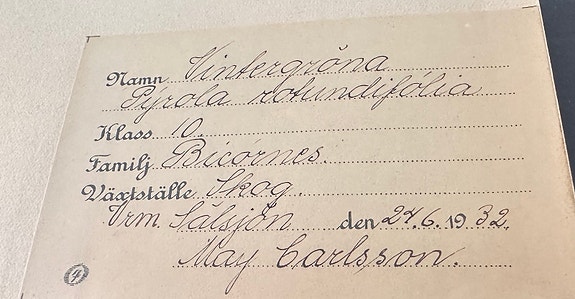 Namn Vintergröna
Pýrola rotundifólia
Klass 10.
Familj Bicornes.
Växtställe Skog.
Vrm. Salsjön den 24.6. 1932.
May Carlsson.
4